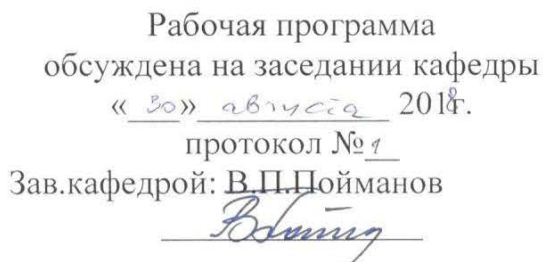 Рабочая программа
обсуждена на заседании кафедры
«30» августа 2018г.
протокол №1
Зав.кафедрой: В.П.Пойманов